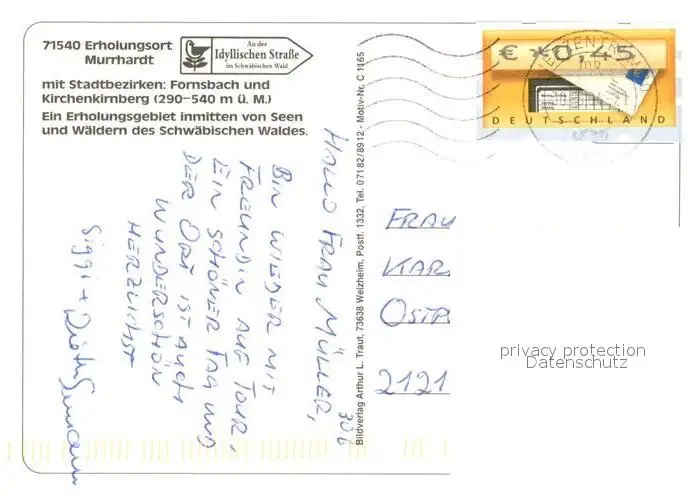 71540 Erholungsort
Murrhardt
An der
Idyllischen Straße
im Schwäbischen Wald
mit Stadtbezirken: Fornsbach und
Kirchenkirnberg (290–540 m ü. M.)
Ein Erholungsgebiet inmitten von Seen
und Wäldern des Schwäbischen Waldes.
HALLO FRAU MÜLLER,
BIN WIEDER MIT
FREUNDIN AUF TOUR.
EIN SCHÖNER TAG UND
DER ORT IST AUCH
WUNDERSCHÖN
HERZLICHST
Siggi +
Bildverlag Arthur L. Traut, 73638 Welzheim, Postf. 1332, Tel. 07182/8912 - Motiv-Nr. C 1165
306
€ *0,45
DEUTSCHLAND
BRIEFZENTRUM
FRAU
KAR
OSTP
2121
privacy protection
Datenschutz